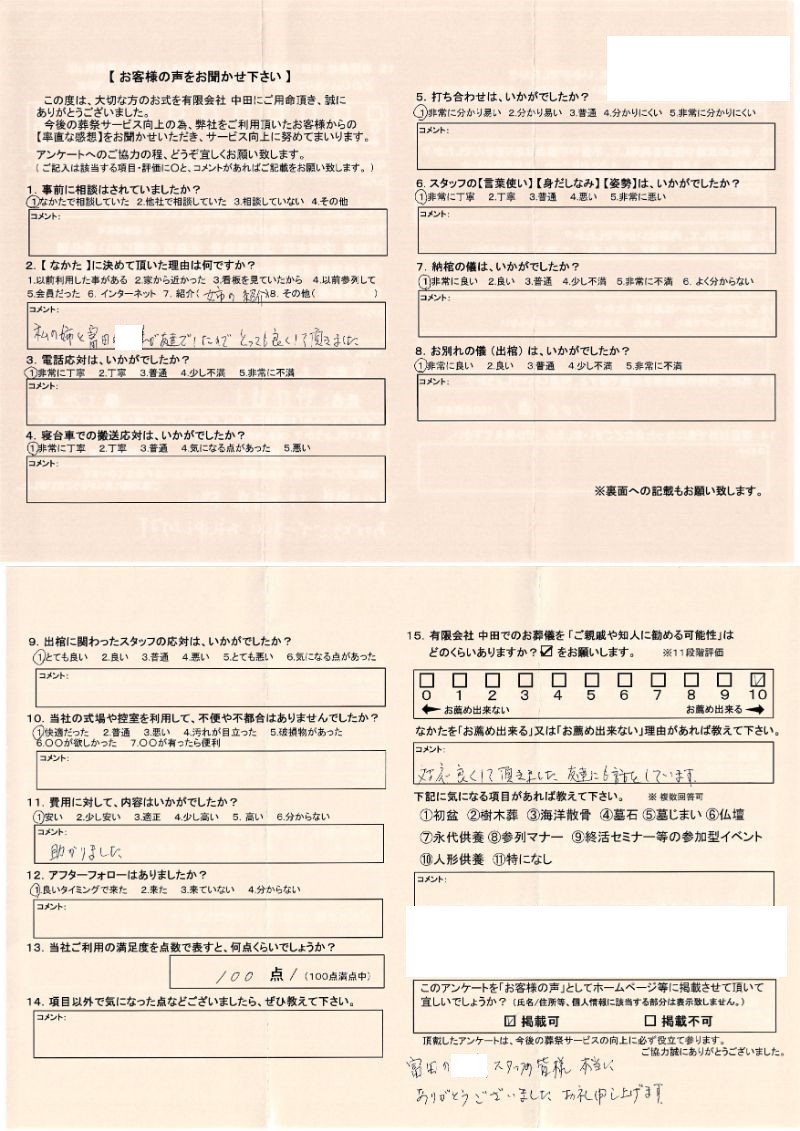 【 お客様の声をお聞かせ下さい 】
この度は、大切な方のお式を有限会社 中田にご用命頂き、誠に
ありがとうございました。
今後の葬祭サービス向上の為、弊社をご利用頂いたお客様からの
【率直な感想】をお聞かせいただき、サービス向上に努めてまいります。
アンケートへのご協力の程、どうぞ宜しくお願い致します。
( ご記入は該当する項目・評価に〇と、コメントがあればご記載をお願い致します。 )
1. 事前に相談はされていましたか?
①なかたで相談していた 2.他社で相談していた 3.相談していない 4.その他
コメント:
2.【 なかた 】に決めて頂いた理由は何ですか?
1.以前利用した事がある 2.家から近かった 3.看板を見ていたから 4.以前参列して
5.会員だった 6. インターネット 7. 紹介( 姉の紹介 )8. その他( )
コメント:
私の姉と富田 が友達でしたので とっても良くして頂きました
3. 電話応対は、いかがでしたか?
①非常に丁寧 2.丁寧 3.普通 4.少し不満 5.非常に不満
コメント:
4. 寝台車での搬送応対は、いかがでしたか?
①非常に丁寧 2.丁寧 3.普通 4.気になる点があった 5.悪い
コメント:
5. 打ち合わせは、いかがでしたか?
①非常に分かり易い 2.分かり易い 3.普通 4.分かりにくい 5.非常に分かりにくい
コメント:
6. スタッフの【言葉使い】【身だしなみ】【姿勢】は、いかがでしたか?
①非常に丁寧 2.丁寧 3.普通 4.悪い 5.非常に悪い
コメント:
7. 納棺の儀は、いかがでしたか?
①非常に良い 2.良い 3.普通 4.少し不満 5.非常に不満 6. よく分からない
コメント:
8. お別れの儀（出棺）は、いかがでしたか?
①非常に良い 2.良い 3.普通 4.少し不満 5.非常に不満
コメント:
※裏面への記載もお願い致します。
9. 出棺に関わったスタッフの応対は、いかがでしたか?
①とても良い 2.良い 3.普通 4.悪い 5.とても悪い 6.気になる点があった
コメント:
10. 当社の式場や控室を利用して、不便や不都合はありませんでしたか?
①快適だった 2.普通 3.悪い 4.汚れが目立った 5.破損物があった
6.〇〇が欲しかった 7.〇〇が有ったら便利
コメント:
11. 費用に対して、内容はいかがでしたか?
①安い 2.少し安い 3.適正 4.少し高い 5. 高い 6.分からない
コメント:
助かりました
12. アフターフォローはありましたか?
①良いタイミングで来た 2.来た 3.来ていない 4.分からない
コメント:
13. 当社ご利用の満足度を点数で表すと、何点くらいでしょうか?
100 点! (100点満点中)
14. 項目以外で気になった点などございましたら、ぜひ教えて下さい。
コメント:
15. 有限会社 中田でのお葬儀を「ご親戚や知人に勧める可能性」は
どのくらいありますか?☑をお願いします。 ※11段階評価
0 1 2 3 4 5 6 7 8 9 10
お薦め出来ない お薦め出来る
なかたを「お薦め出来る」又は「お薦め出来ない」理由があれば教えて下さい。
コメント:
対応良くして頂きました 友達にも話をしています
下記に気になる項目があれば教えて下さい。 ※ 複数回答可
①初盆 ②樹木葬 ③海洋散骨 ④墓石 ⑤墓じまい ⑥仏壇
⑦永代供養 ⑧参列マナー ⑨終活セミナー等の参加型イベント
⑩人形供養 ⑪特になし
コメント:
このアンケートを「お客様の声」としてホームページ等に掲載させて頂いて
宜しいでしょうか? (氏名/住所等、個人情報に該当する部分は表示致しません。)
☑ 掲載可 □ 掲載不可
頂戴したアンケートは、今後の葬祭サービスの向上に必ず役立て参ります。
ご協力誠にありがとうございました。
富田の スタッフの皆様 本当に
ありがとうございました お礼申し上げます